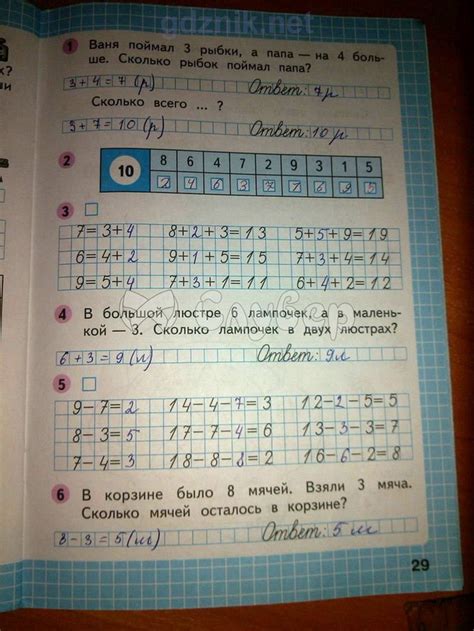 gdznik.net
1 Ваня поймал 3 рыбки, а папа — на 4 боль-
ше. Сколько рыбок поймал папа?
3+4=7 (р) Ответ: 7р
Сколько всего ... ?
3+7=10(р) Ответ: 10 р
2 10 8 6 4 7 2 9 3 1 5
2 4 6 3
3
7=3+4 8+2+3=13 5+5+9=19
6=4+2 9+1+5=15 7+3+4=14
9=5+4 7+3+1=11 6+4+2=12
4 В большой люстре 6 лампочек, а в малень-
кой — 3. Сколько лампочек в двух люстрах?
6+3=9(л) Ответ: 9л
5
9-7=2 14-4-7=3 12-2-5=5
8-3=5 17-7-4=6 13-3-3=7
7-4=3 18-8-8=2 16-6-2=8
6 В корзине было 8 мячей. Взяли 3 мяча.
Сколько мячей осталось в корзине?
8-3=5(м) Ответ: 5 м
29